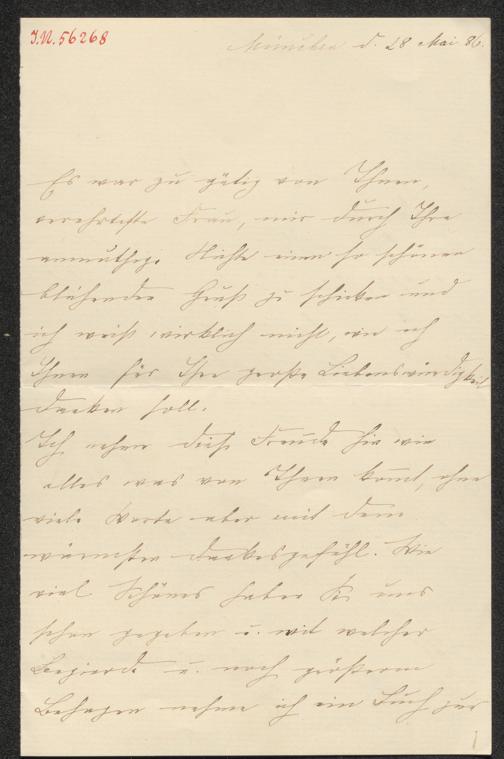 J.N. 56268
München d. 28 Mai 86.
Es war zu gütig von Ihnen,
verehrteste Frau, mir durch Ihre
anmuthige Nichte einen so schönen
blühenden Gruß zu schicken und
ich weiß wirklich nicht, wie ich
Ihnen für Ihre große Liebenswürdigkeit
danken soll.
Ich nehme diese Freude hin wie
alles was von Ihnen kommt, ohne
viele Worte aber mit dem
wärmsten Dankesgefühl. Wie
viel Schönes haben Sie uns
schon gegeben u. mit welcher
Begierde u. noch größerem
Behagen nehme ich ein Buch zur
1